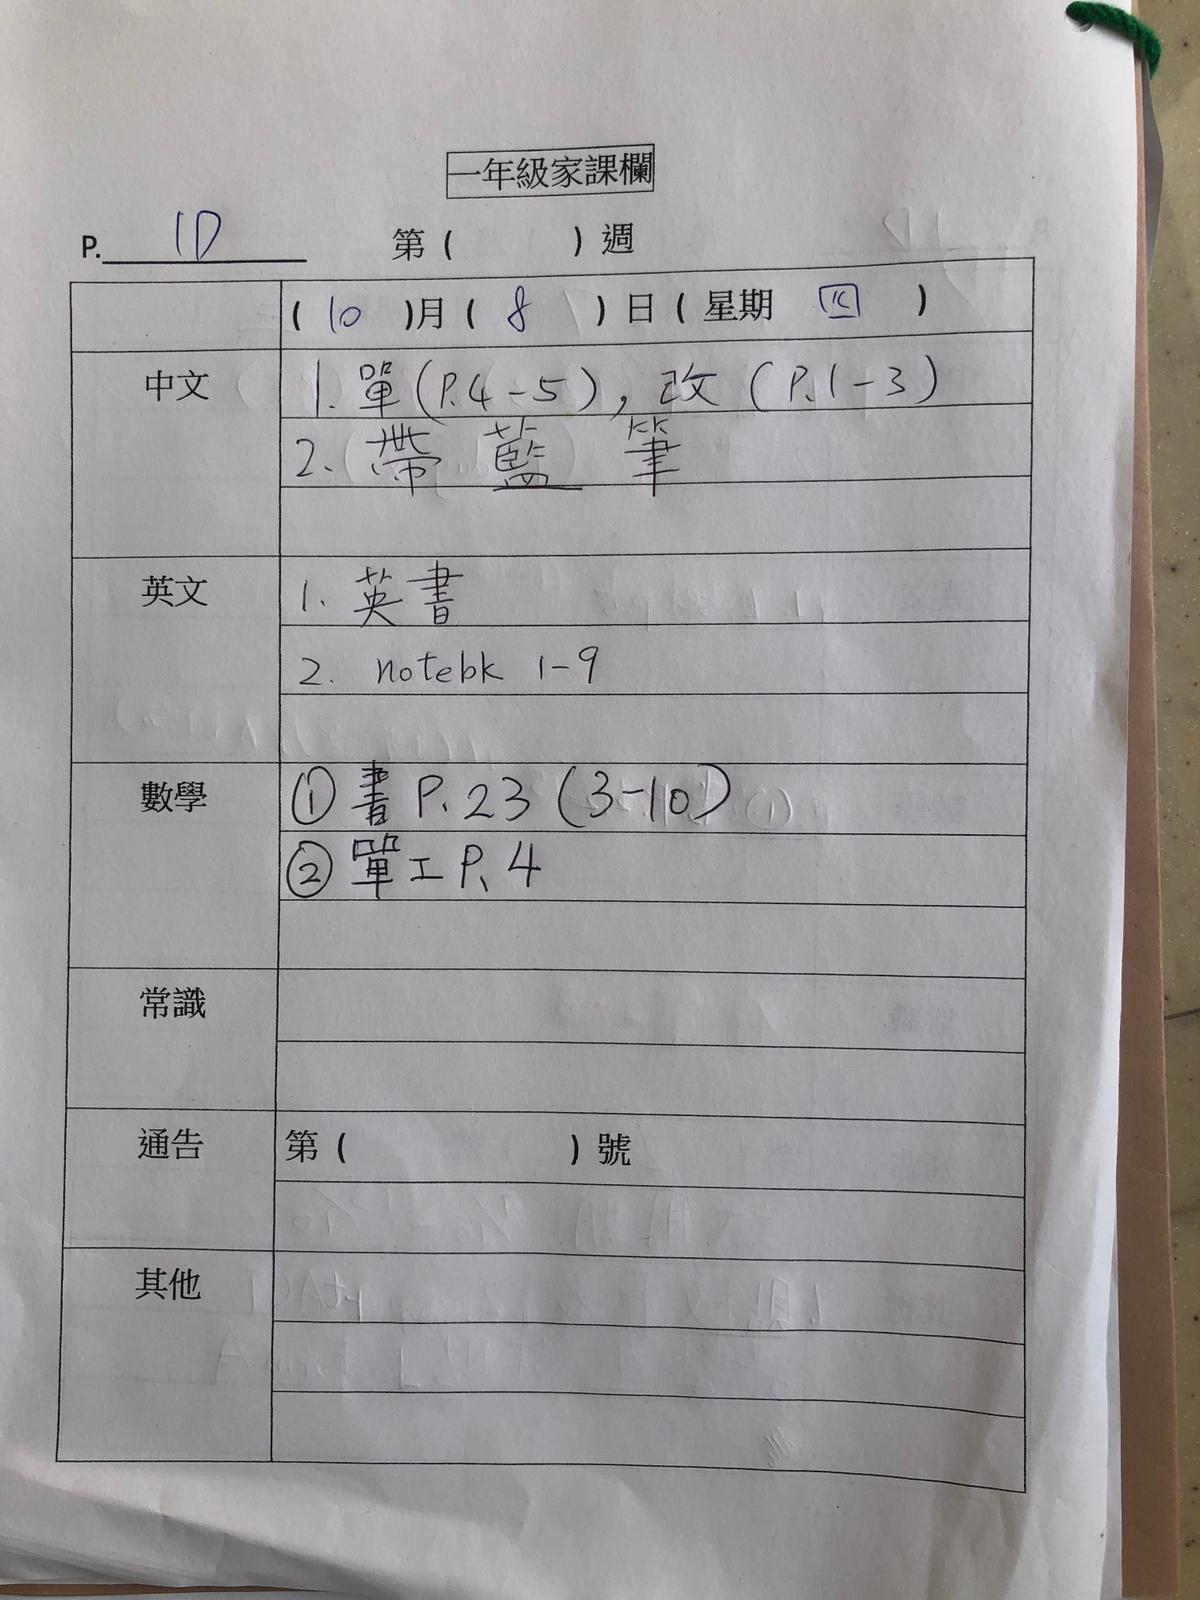 一年級家課欄
P. 1D 第( )週
(10)月(8)日(星期 四)
中文 1. 單(P.4-5), 改(P.1-3)
2. 帶藍筆
英文 1. 英書
2. notebk 1-9
數學 ① 書 P.23 (3-10)
② 單工 P.4
常識
通告 第( )號
其他